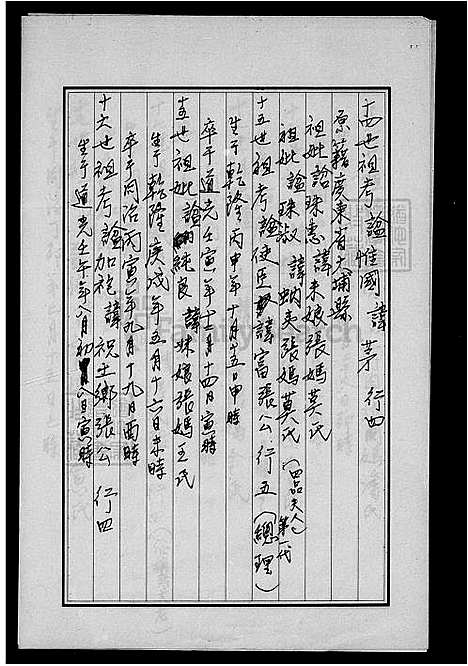 十四世祖考諡惟國諱茅 行四
原籍廣東省大埔縣
祖妣諡珠惠諱未娘張媽莫氏
祖妣諡珠淑諱媽張媽莫氏（四品夫人）第一代
十五世祖考諡使臣諱富張公 行五（總理）
生于乾隆丙申年十月十五日申時
卒于道光壬寅年十二月十四日寅時
十五世祖妣諡純良諱妹娘張媽王氏
生于乾隆庚戌年五月十六日未時
卒于同治丙寅年九月十九日酉時
十六世祖考諡加袍諱祝土鄉張公 行四
生于道光壬午年八月初八日寅時